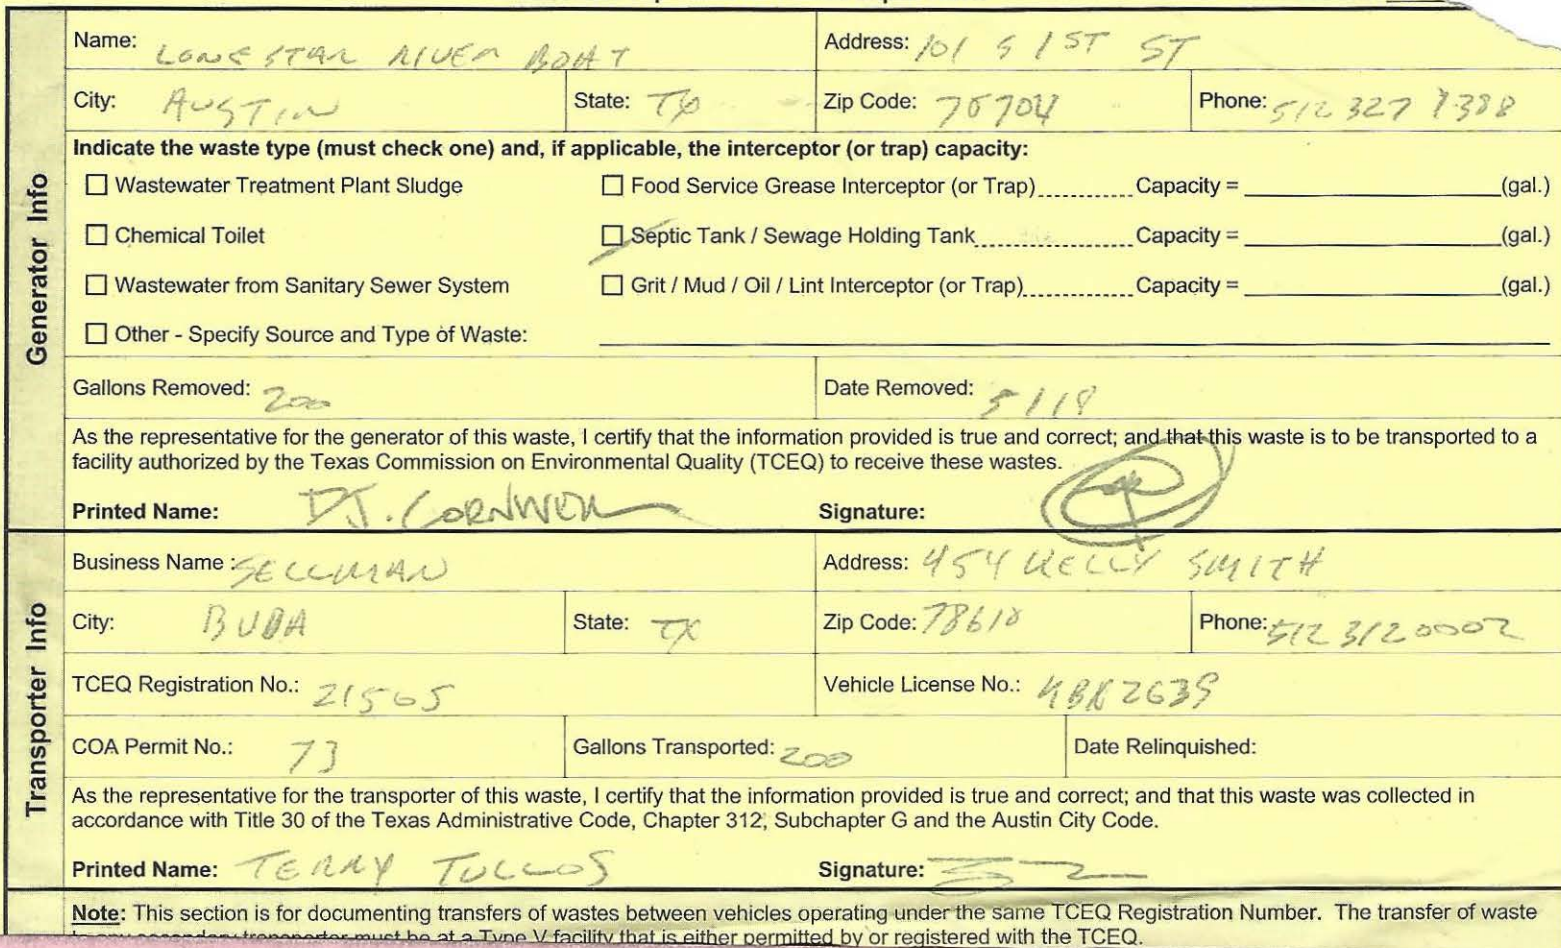 Name: LONESTAR RIVER BOAT Address: 101 S 1ST ST
City: AUSTIN State: TX Zip Code: 78704 Phone: 512 327 1388
Generator Info
Indicate the waste type (must check one) and, if applicable, the interceptor (or trap) capacity:
☐ Wastewater Treatment Plant Sludge ☐ Food Service Grease Interceptor (or Trap) Capacity = (gal.)
☐ Chemical Toilet ☑ Septic Tank / Sewage Holding Tank Capacity = (gal.)
☐ Wastewater from Sanitary Sewer System ☐ Grit / Mud / Oil / Lint Interceptor (or Trap) Capacity = (gal.)
☐ Other - Specify Source and Type of Waste:
Gallons Removed: 200 Date Removed: 5/18
As the representative for the generator of this waste, I certify that the information provided is true and correct; and that this waste is to be transported to a
facility authorized by the Texas Commission on Environmental Quality (TCEQ) to receive these wastes.
Printed Name: DJ. CORNWELL Signature:
Transporter Info
Business Name : SELLMAN Address: 454 KELLY SMITH
City: BUDA State: TX Zip Code: 78610 Phone: 512 312 0002
TCEQ Registration No.: 21565 Vehicle License No.: KBK2639
COA Permit No.: 73 Gallons Transported: 200 Date Relinquished:
As the representative for the transporter of this waste, I certify that the information provided is true and correct; and that this waste was collected in
accordance with Title 30 of the Texas Administrative Code, Chapter 312, Subchapter G and the Austin City Code.
Printed Name: TERRY TULLOS Signature:
Note: This section is for documenting transfers of wastes between vehicles operating under the same TCEQ Registration Number. The transfer of waste
to any secondary transporter must be at a Type V facility that is either permitted by or registered with the TCEQ.